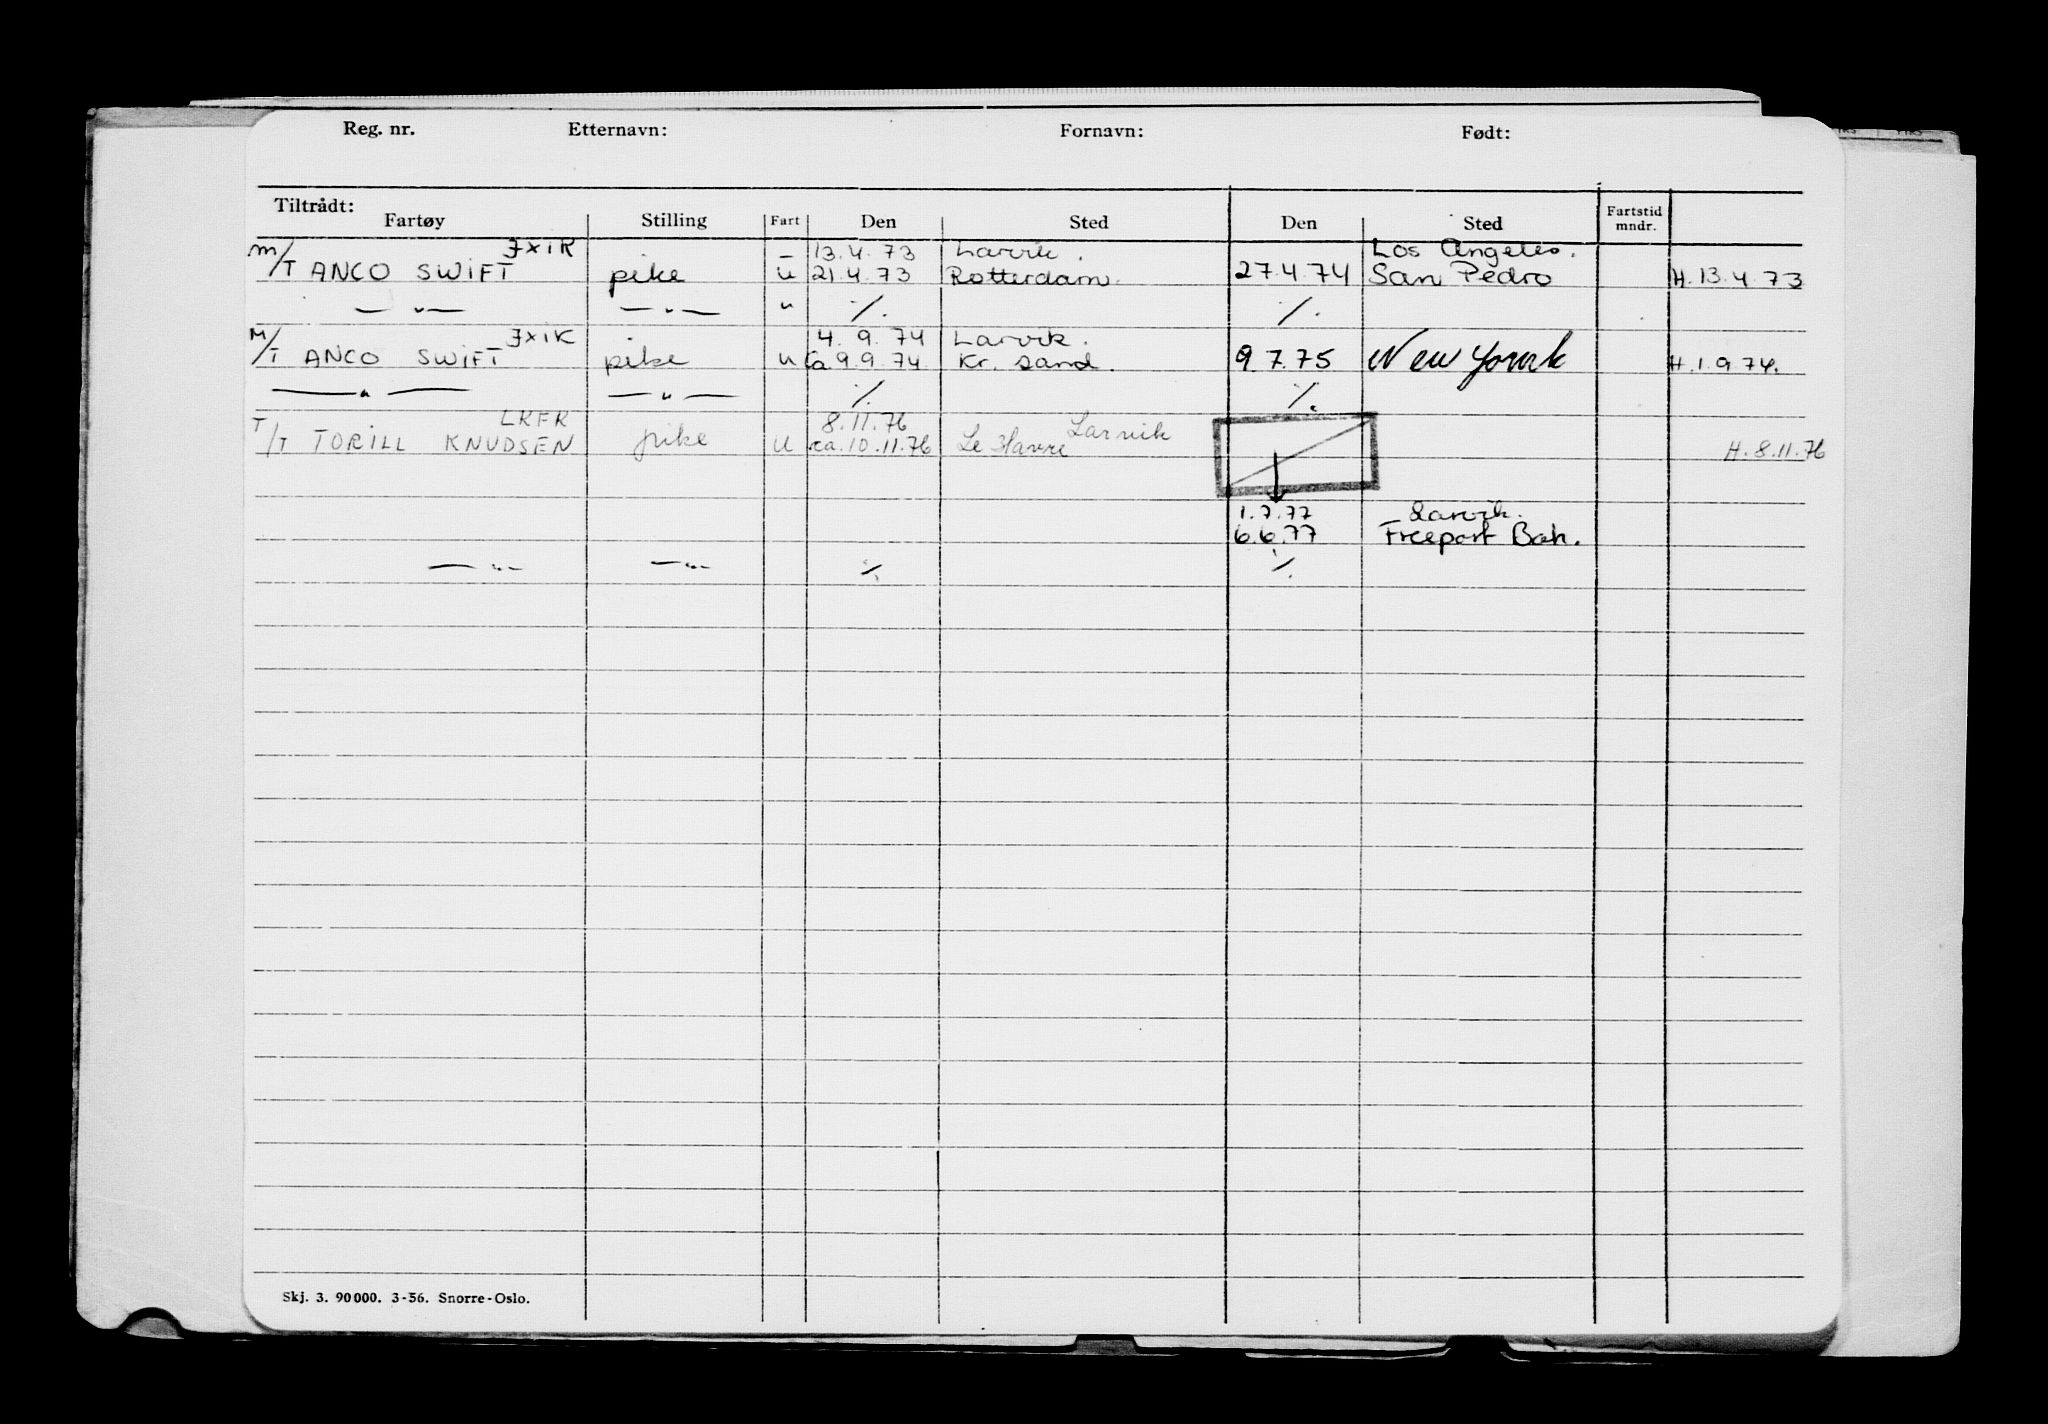 Reg. nr. Etternavn: Fornavn: Født:
Tiltrådt:
Fartøy Stilling Fart Den Sted Den Sted Fartstid mndr.
JXIK – 13.4.73 Larvik. Los Angeles.
M/T ANCO SWIFT pike u 21.4.73 Rotterdam. 27.4.74 San Pedro H. 13.4.73
— " — — " — " ·/. ·/.
JXIK 4.9.74 Larvik.
M/T ANCO SWIFT pike u ca. 9.9.74 Kr. sand. 9.7.75 New York H. 1.9.74.
— " — — " — ·/. ·/.
LKFR 8.11.76 Larvik
T/T TORILL KNUDSEN pike u ca. 10.11.76 Le Havre H. 8.11.76
1.7.77 Larvik.
6.6.77 Freeport Bah.
— " — — " — ·/. ·/.
Skj. 3. 90000. 3-56. Snorre-Oslo.